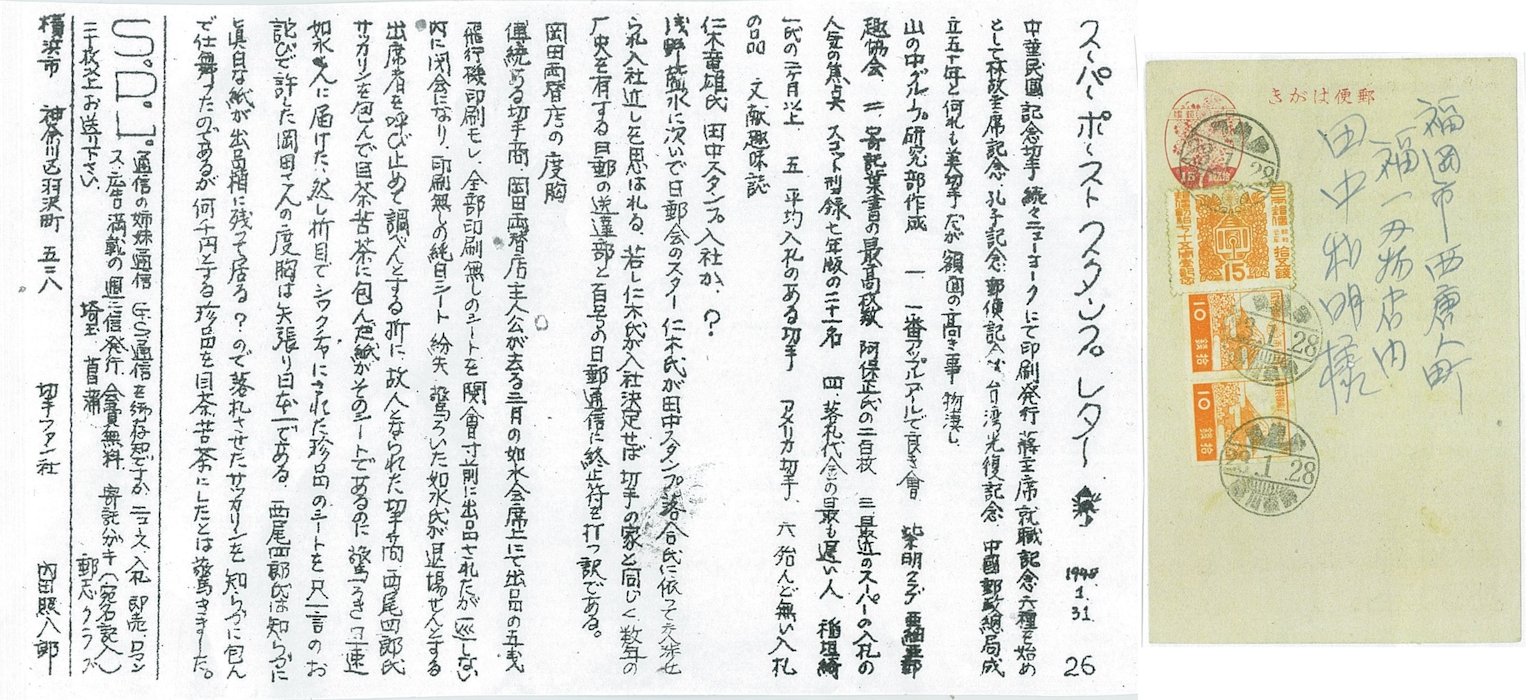 スーパーポーストワスタンプレター 1948.1.31. 26
中華民國 記念切手 続々ニューヨークにて印刷発行 蒋主席就職記念六種を始め
として林故主席記念、孔子記念、郵便記念、台湾光復記念、中國郵政總局成
立五十年と何れも美切手だが額面の高き事物凄し
山の中グループ研究部作成 一、一番アップルアールで良き會
趣協会、二、寄託葉書の最高枚数 阿保正氏の二百枚 三、最近のスーパーの入札の
人気の焦点 スコット型録七年版の二十一名 四 落札代金の最も遅い人
氏の二ヶ月以上 五 平均入札のある切手 アメリカ切手 六 殆んど無い入札
の品 文献趣味誌
仁木竜雄氏 田中スタンプ入社か？
浅野藍水に次いで日郵会のスター仁木氏が田中スタンプ落合氏に依って入社せ
られ入社近しと思は れる、若し仁木氏が入社決定せば切手の家と同じく数年の
厂史を有する日郵の送達部と百号の日郵通信に終止符を打つ訳である。
岡田両替店の度胸
傳統ある切手商、岡田両替店主人公が去る三月の如水会席上にて出品の五戋
飛行機印刷モレ、全部印刷無しのシートを開會寸前に出品されたが一巡しない
内に閉会になり、印刷無しの純白シート紛失、驚ろいた如水氏が退場せんとする
出席者を呼び止めて調べんとする折に、故人となられた切手商 西尾四郎氏
サッカリンを包んで目茶苦茶に包んだ紙がそのシートであるのに驚ろき早速
如水さんに届けた、然し折目でシワクチャにされた珍品のシートを只一言のお
詫びで許した岡田さんの度胸は矢張り日本一である、西尾四郎氏は知らずに
眞白な紙が出品箱に残って居る？ので落札させたサッカリンを知らずに包ん
で仕舞ったのであるが何千円とする珍品を目茶苦茶にしたとは驚ろきました。
S.P.L. 通信の姉妹通信 G.S通信を御存知ですか ニュース、入札、即売、ロマン
ス、広告満載の週二信発行、会員無料、寄託分キ（宛名記入）
二十枚以上お送り下さい。 埼玉 菖蒲 郵志クラブ
横浜市 神奈川区羽沢町 五二八 切手ファン社 内田照八郎
郵便はがき
福岡市西唐人町
福一刃物店内
田中利明様
日本郵便
拾五銭
15
10 拾銭
10 拾銭
23.1.28
23.1.28
23.1.28